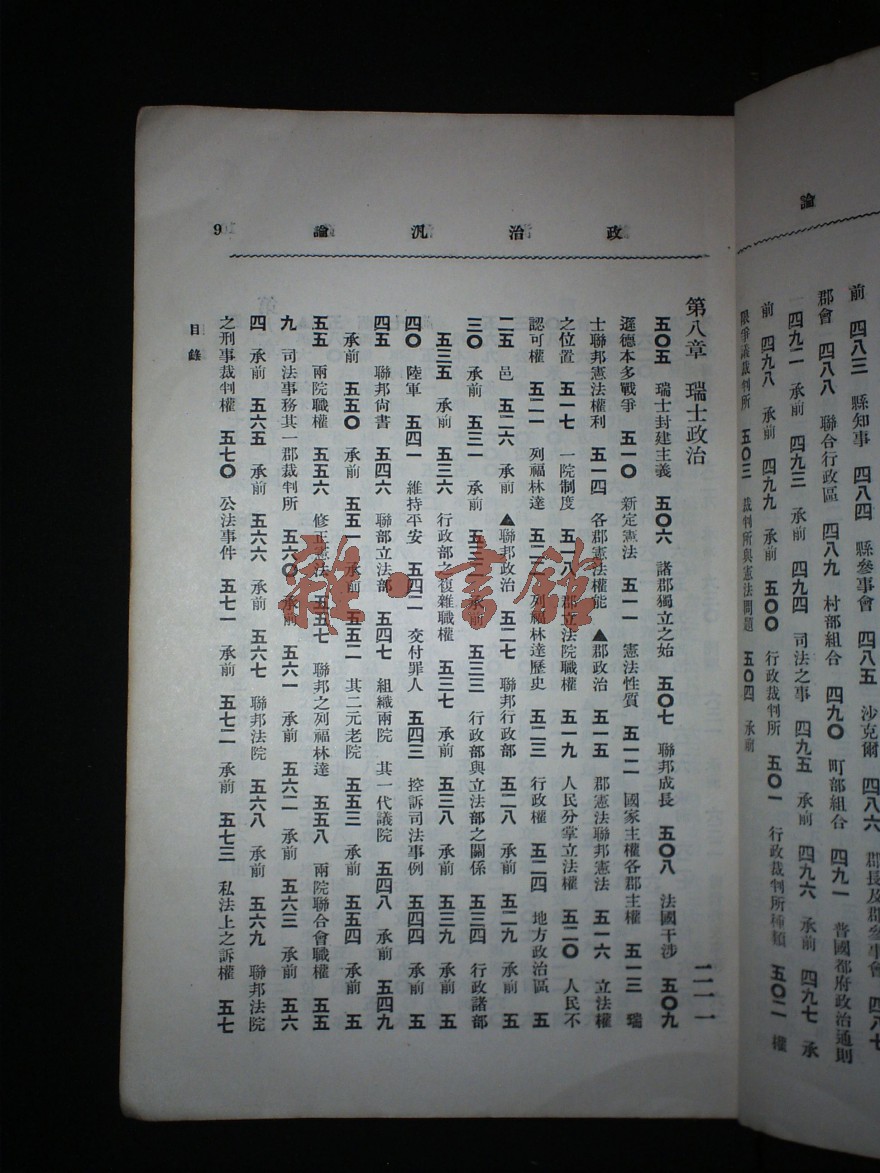 論
前 四八三 縣知事 四八四 縣參事會 四八五 沙克爾 四八六 郡長及郡參事會 四八七
郡會 四八八 聯合行政區 四八九 村部組合 四九〇 町部組合 四九一 普國都府政治通則
四九二 承前 四九三 承前 四九四 司法之事 四九五 承前 四九六 承前 四九七 承
前 四九八 承前 四九九 承前 五〇〇 行政裁判所 五〇一 行政裁判所種類 五〇二 權
限爭議裁判所 五〇三 裁判所與憲法問題 五〇四 承前
政治汎論 9
第八章 瑞士政治 二一一
五〇五 瑞士封建主義 五〇六 諸郡獨立之始 五〇七 聯邦成長 五〇八 法國干涉 五〇九
遜德本多戰爭 五一〇 新定憲法 五一一 憲法性質 五一二 國家主權各郡主權 五一三 瑞
士聯邦憲法權利 五一四 各郡憲法權能 ▲郡政治 五一五 郡憲法聯邦憲法 五一六 立法權
之位置 五一七 一院制度 五一八 郡立法院職權 五一九 人民分掌立法權 五二〇 人民不
認可權 五二一 列福林達 五二二 列福林達歷史 五二三 行政權 五二四 地方政治區 五
二五 邑 五二六 承前 ▲聯邦政治 五二七 聯邦行政部 五二八 承前 五二九 承前 五
三〇 承前 五三一 承前 五三二 承前 五三三 行政部與立法部之關係 五三四 行政諸部
五三五 承前 五三六 行政部之復雜職權 五三七 承前 五三八 承前 五三九 承前 五
四〇 陸軍 五四一 維持平安 五四二 交付罪人 五四三 控訴司法事例 五四四 承前 五
四五 聯邦尙書 五四六 聯部立法部 五四七 組織兩院 其一代議院 五四八 承前 五四九
承前 五五〇 承前 五五一 承前 五五二 其二元老院 五五三 承前 五五四 承前 五
五五 兩院職權 五五六 修正憲法 五五七 聯邦之列福林達 五五八 兩院聯合會職權 五五
九 司法事務其一郡裁判所 五六〇 承前 五六一 承前 五六二 承前 五六三 承前 五六
四 承前 五六五 承前 五六六 承前 五六七 聯邦法院 五六八 承前 五六九 聯邦法院
之刑事裁判權 五七〇 公法事件 五七一 承前 五七二 承前 五七三 私法上之訴權 五七
目錄
雜·書館